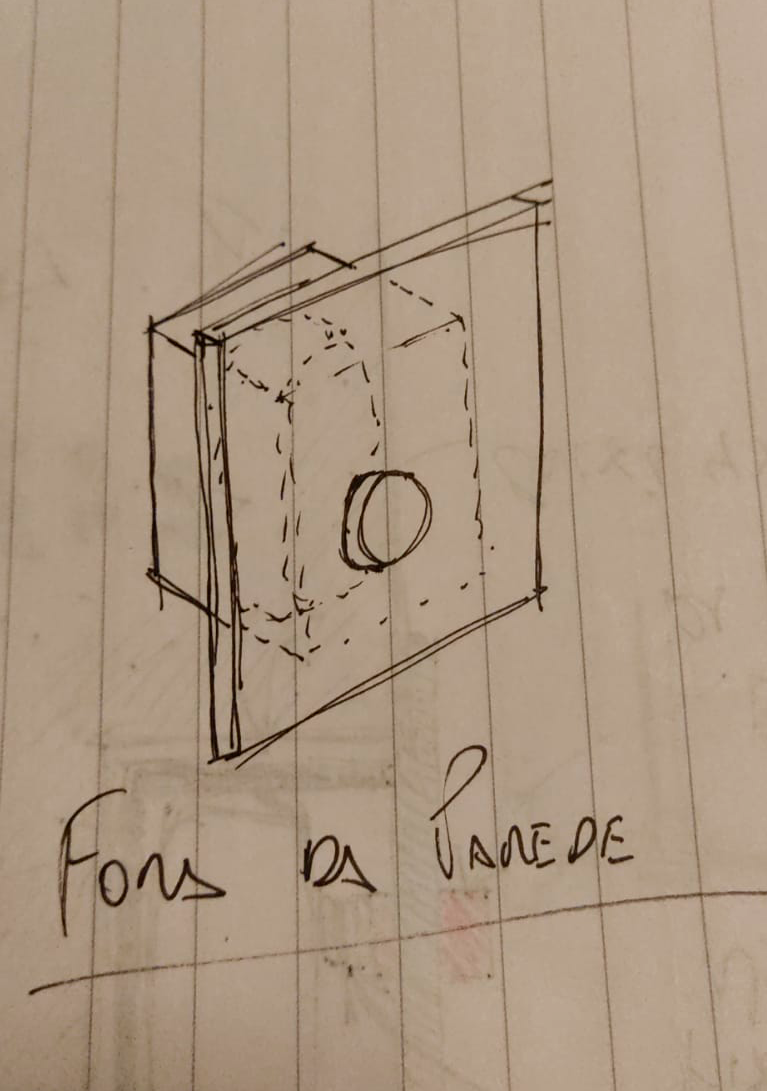 FORA DA PAREDE